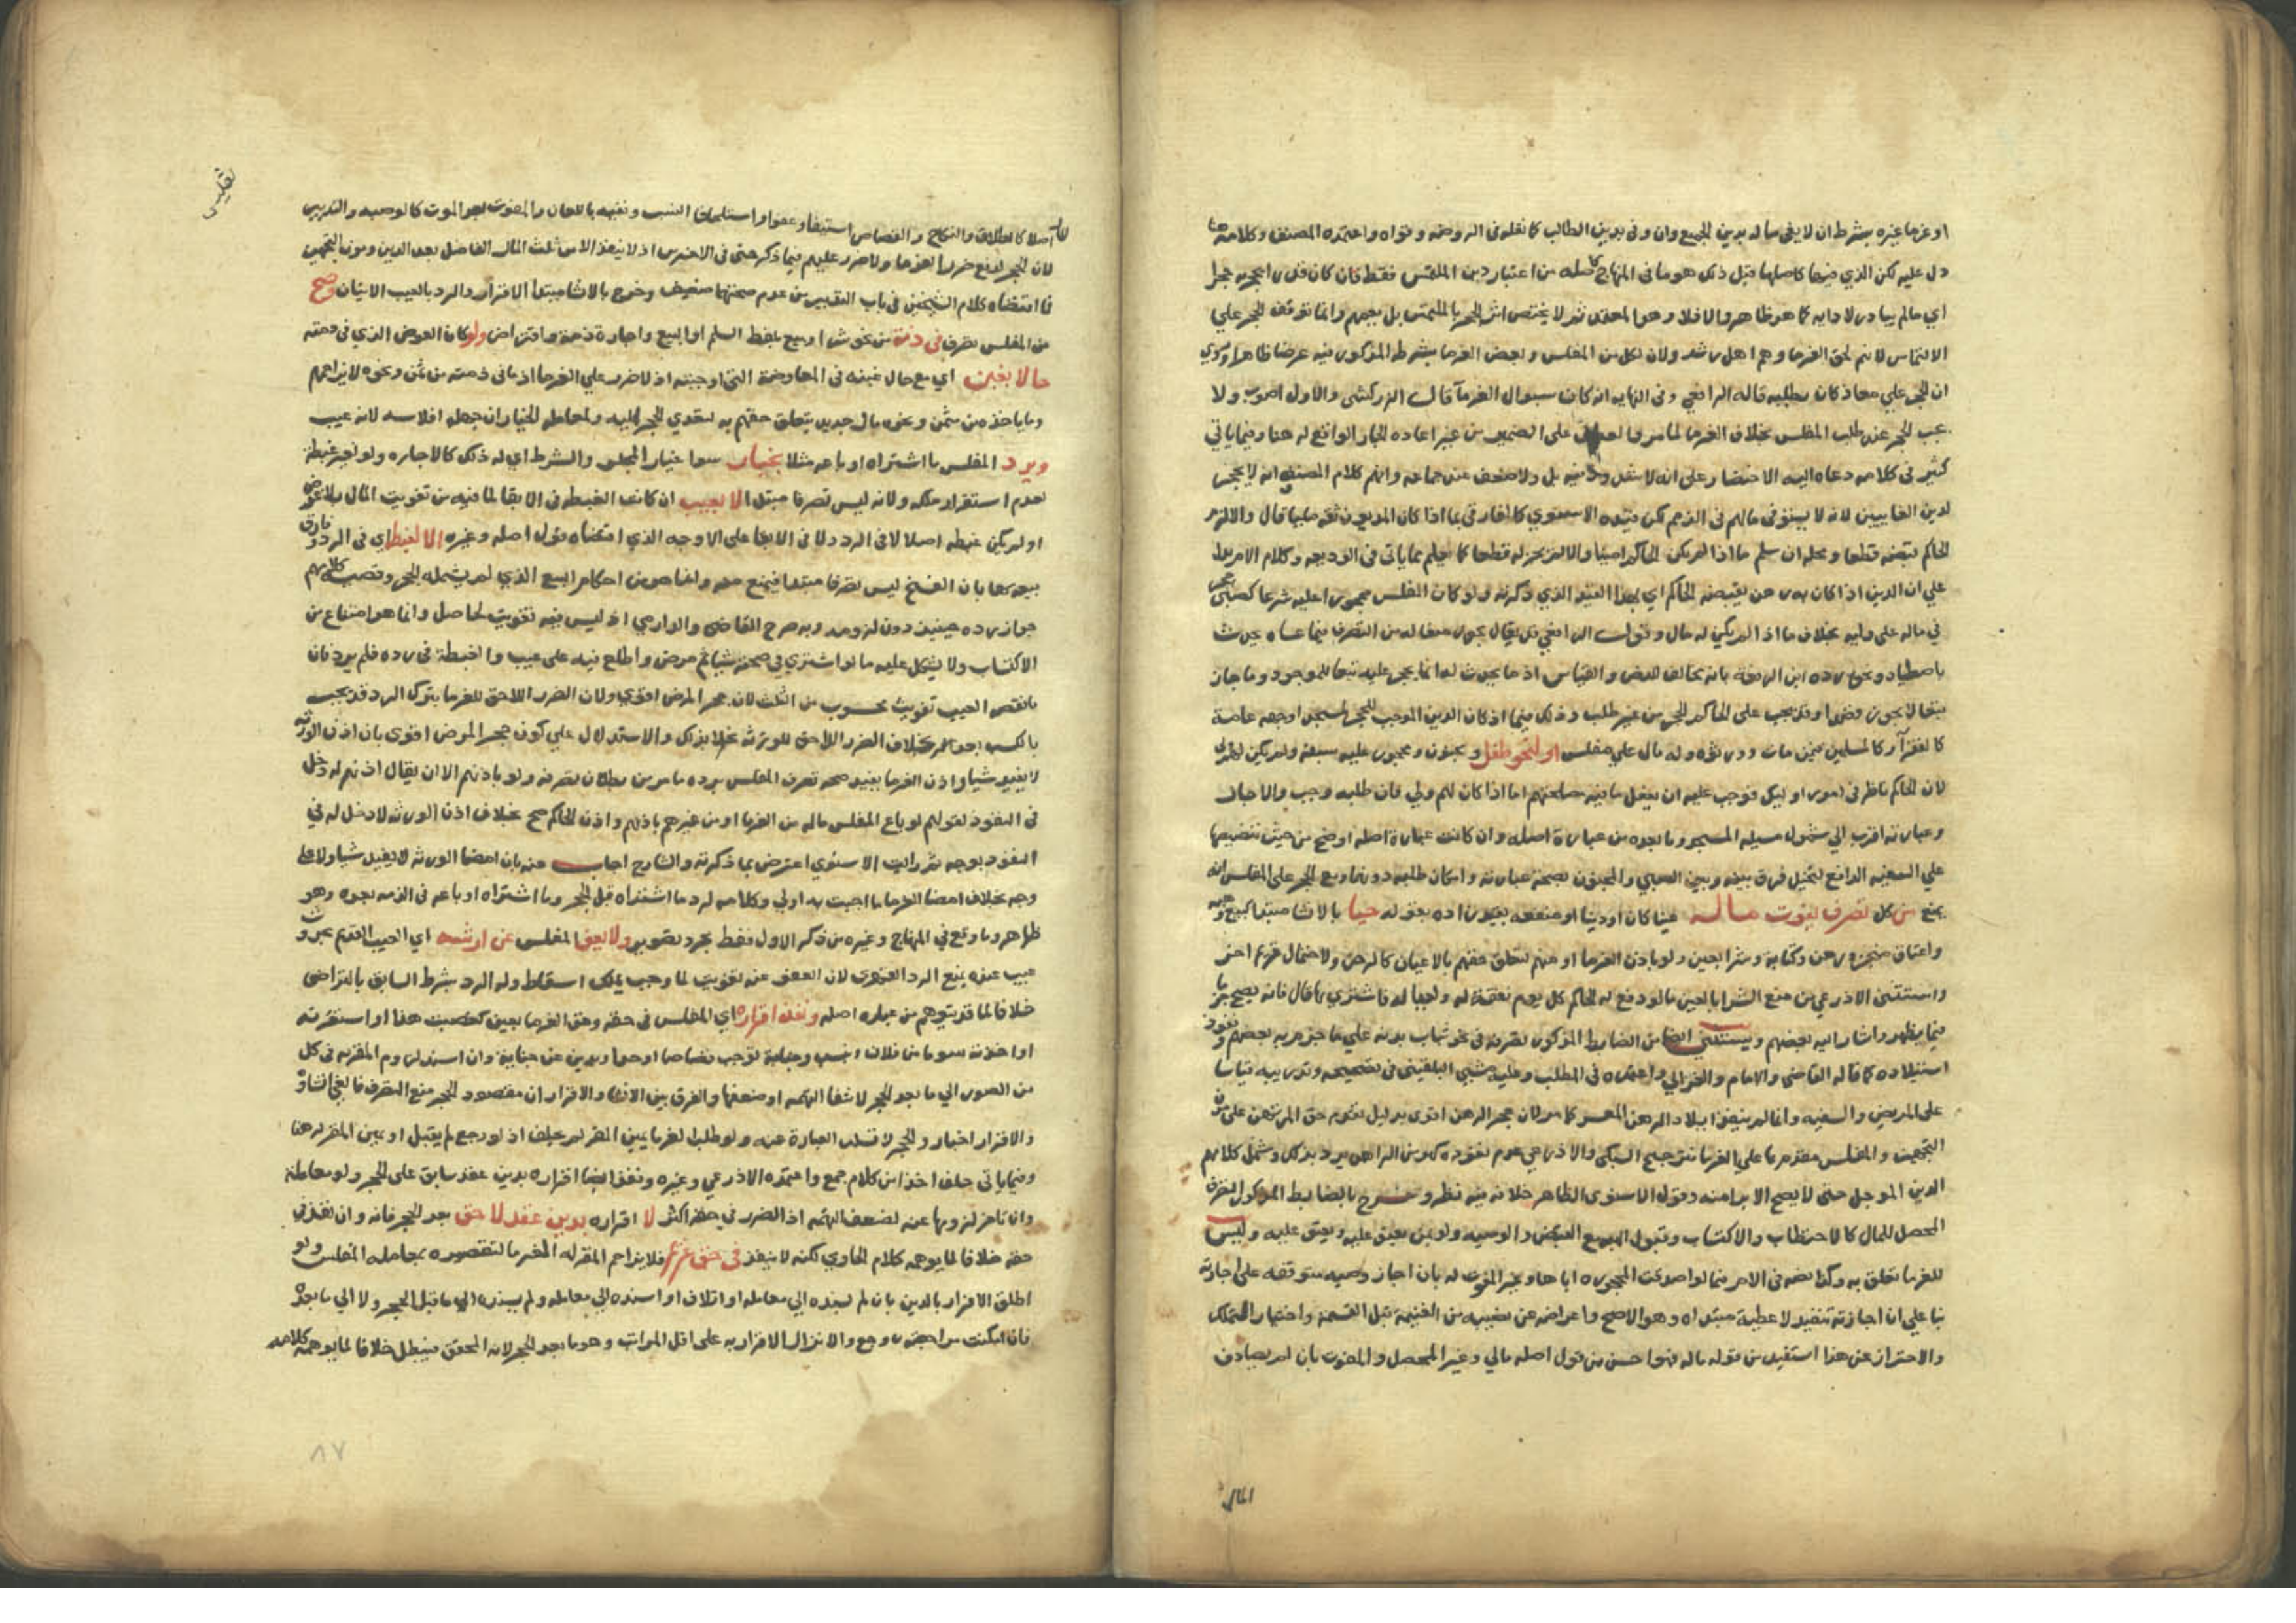 او غرماء غيره بشرط ان لا يفي ماله بدين الجميع وان وفى بدين الطالب كما نقله في الروضة وقواه واعتمده المصنف وكلامه هنا
دل عليه لكن الذي فيها كاصلها قبل ذلك هو ما في المنهاج كاصله من اعتبار دين الملتمس فقط فان كان قدرا يحجر به حجر
اي مالم يبادر لادايه كما هو ظاهر والا فلا وهو المعتمد ثم لا يختص اثر الحجر بالملتمس بل يعمهم وانما توقف الحجر علي
الالتماس لانه لحق الغرما وهم اهل رشد ولان لكل من المفلس وبعض الغرما بشرطه المذكور فيه غرضا ظاهرا وروي
ان الحجر علي معاذ كان بطلبه قاله الرافعي وفي النهايه انه كان بسوال الغرمآ قال الزركشي والاول اصوب ولا
يجب الحجر عند طلب المفلس بخلاف الغرما لما مر علي الضمير من غير اعاده الجار الواقع له هنا وفيما ياتي
كثير في كلامه دعاه اليه الاختصار على انه لا شذوذ فيه بل ولا ضعف عند جماعه وافهم كلام المصنف انه لا يحجر
لدين الغايبين لانه لا يستوفي مالهم في الذمم لكن قيده الاسنوي كالفارقي بما اذا كان المديون ثقه مليا قال والا لزم
الحاكم قبضه قطعا ومحله ان سلم ما اذا لم يكن الحاكم امينا والا لم يجز له قطعا كما يعلم مما ياتي في الوديعه وكلام الام يدل
علي ان الدين اذا كان به رهن يقبضه الحاكم اي بهذا القيد الذي ذكرته ولو كان المفلس محجورا عليه شرعا كصبي حجر
في ماله على وليه بخلاف ما اذا لم يكن له مال وقول الرافعي قد يقال يجوز منعا له من التصرف فيما عساه يحدث
باصطياد ونحوه رده ابن الرفعة بانه مخالف للنص والقياس اذ ما يحدث له انما يحجر عليه تبعا للموجود وما جاز
تبعا لا يجوز قصدا وقد يجب على الحاكم الحجر من غير طلب وذلك فيما اذا كان الدين الموجب للحجر لمسجد او جهه عامة
كالفقرآء وكالمسلمين فيمن مات وورثوه وله مال علي مفلس او لنحو طفل ومجنون ومحجور عليه بسفه ولم يكن لهم ولي
لان الحاكم ناظر في امور اوليك فوجب عليه ان يفعل ما فيه مصلحتهم اما اذا كان لهم ولي فان طلبه وجب والا جاز
وعبارته اقرب الي شمول مسيله المسجد وما بعده من عبارة اصله وان كانت عبارة اصله اوضح من حيث تنصيصها
علي السفيه الدافع لتخيل فرق بينه وبين الصبي والمجنون بصحة عبارته وامكان طلبه دونهما ومع الحجر على المفلس انه
يمنع من كل تصرف يفوت ماله عينا كان او دينا او منفعه بقيود زاده بقوله حيا بالانشا مبتدا كبيع وهبه
واعتاق منجز ورهن وكتابة وشرا بعين ولو باذن الغرما او منهم لتعلق حقهم بالاعيان كالرهن ولاحتمال غريم اخر
واستثنى الاذرعي من منع الشرا بالعين ما لو دفع له الحاكم كل يوم نفقة له ولعياله فاشترى بها قال فانه يصح جزما
فيما يظهر واشار اليه بعضهم ويستثنى ايضا من الضابط المذكور تصرفه في نحو ثياب بدنه علي ما جزم به بعضهم ونفوذ
استيلاده كما قاله القاضي والامام والغزالي واعتمده في المطلب وعليه مشى البلقيني في تصحيحه وتدريبه قياسا
على المريض والسفيه وانما لم ينفذ ايلاد الراهن المعسر كما مر لان حجر الرهن اقوى بدليل تقديم حق المرتهن على مؤن
التجهيز والمفلس مقدم بها علي الغرما فترجيح السبكي والاذرعي عدم نفوذه كهو من الراهن يرد بذلك وشمل كلامهم
الدين المؤجل حتى لا يصح الابرا منه وقول الاسنوى الظاهر خلافه فيه نظر وخرج بالضابط المذكور التصرف
المحصل للمال كالاحتطاب والاكتساب وقبول البيع القبض والوصيه ولو بمن يعتق عليه ويعتق عليه وليس
للغرما تعلق به وكذا بضه في الامر فيما لو اصدقت المحجوره اباها وغير المفوت له بان اجاز وصيه متوقفه على اجازته
بنا علي ان اجازته تنفيذ لا عطية مبتداه وهو الاصح واعراضه عن نصيبه من الغنيمة قبل القسمة واختيار التملك
والاحتراز عن هذا استفيد من قوله ماله فهو احسن من قول اصله مالي وغير المحصل والمفوت بان لم يصادف
المال
تفليس
مالا اصلا كالطلاق والنكاح والقصاص استيفا وعفوا واستلحاق النسب ونفيه باللعان والمفوت بعد الموت كالوصيه والتدبير
لان الحجر لدفع ضرر الغرما ولا ضرر عليهم فيما ذكر حتى في الاخيرين اذ لا ينفذ الا من ثلث المال الفاضل بعد الدين ومون التجهيز
فما اقتضاه كلام الشيخين في باب التدبير من عدم صحتهما ضعيف وخرج بالانشا مبتدا الاقرار والرد بالعيب الاتيان وصح
من المفلس تصرف في ذمة من نحو شرا وبيع بلفظ السلم او البيع واجارة ذمة واقتراض ولو كان العوض الذي في ذمته
حالا بغبن اي مع حال غبنه في المعاوضة التي اوجبته اذ لا ضرر علي الغرما اذ ما في ذمته من ثمن ونحوه لا يزاحمهم
وما ياخذه من مثمن ونحوه مال جديد يتعلق حقهم به لتعدي الحجر اليه ولمعامله الخيار ان جهل افلاسه لانه عيب
ويرد المفلس ما اشتراه او باعه مثلا بخيار سوا خيار المجلس والشرط اي له ذلك كالاجازه ولو لغير غبطة
لعدم استقرار ملكه ولانه ليس تصرفا مبتدا الا بعيب ان كانت الغبطه في الابقا لما فيه من تفويت المال بلا عوض
او لم يكن غبطه اصلا لا في الرد ولا في الابقا على الاوجه الذي اقتضاه قول اصله وغيره الا لغبطة اي في الرد وفارق
بيعه بها بان الفسخ ليس تصرفا مبتدا فيمنع منه وانما هو من احكام البيع الذي لم يشمله الحجر وقضيه كلامهم
جواز رده حينيذ دون لزومه وبه صرح القاضي والدارمي اذ ليس فيه تفويت لحاصل وانما هو امتناع من
الاكتساب ولا يشكل عليه ما لو اشترى في صحته شيا ثم مرض واطلع فيه على عيب والغبطة في رده فلم يرد فان
ما نقصه العيب تفويت محسوب من الثلث لان حجر المرض اقوى ولان الضرر اللاحق للغرما بترك الرد قد يجبر
بالكسب بعد بخلاف الضرر اللاحق للورثه بخلا بذلك والاستدلال علي كون حجر المرض اقوى بان اذن الورثه
لا يفيد شيا واذن الغرما يفيد صحه تصرف المفلس يرده ما مر من بطلان تصرفه ولو باذنهم الا ان يقال اذنهم له دخل
في النفوذ لقولهم لو باع المفلس ماله من الغرما او من غيرهم باذنهم واذن الحاكم صح بخلاف اذن الورثه لا دخل له في
النفوذ بوجه ثم رايت الاسنوي اعترض بما ذكرته والشارح اجاب عنه بان امضا الورثه لا يفيد شيا ولا على
وجه بخلاف امضا الغرما وما اجبت به اولي وكلامه لرد ما اشتراه قبل الحجر وما اشتراه او باعه في الذمه بعده وهو
ظاهر وما وقع في المنهاج وغيره من ذكر الاول فقط مجرد تصوير ولا يعفو المفلس عن ارشه اي العيب القديم بحدوث
عيب عنده يمنع الرد القهري لان العفو عنه تفويت لما وجب يملك اسقاطه وله الرد بشرط السابق بالتراضي
خلافا لما قد يتوهم من عباره اصله ونفذ اقراره اي المفلس في حقه وحق الغرما بعين كغصبت هذا او استعرته
او اخذته سوما من فلان وبجناية توجب قصاصا او حدا وبدين عن جناية وان اسند لزوم المقر به في كل
من الصور الي ما بعد الحجر لانتفا التهمه او ضعفها والفرق بين الانشا والاقرار ان مقصود الحجر منع التصرف فالغي انشاؤه
والاقرار اخبار والحجر لا يسلب العبارة عنه ولو طلب الغرما يمين المقر لم يحلف اذ لو رجع لم يقبل او يمين المقر له هنا
وفيما ياتي حلف اخذا من كلام جمع واعتمده الاذرعي وغيره ونفذ ايضا اقراره بدين عقد سابق على الحجر ولو معاملة
وان تاخر لزومها عنه لضعف التهمه اذ الضرر في حقه اكثر لا اقراره بدين عقد لاحق بعد الحجر فانه وان نفذ في
حقه خلافا لما يوهمه كلام الحاوي لكنه لا ينفذ في حق غريم فلا يزاحم المقر له الغرما لتقصيره بمعامله المفلس ولو
اطلق الاقرار بالدين بان لم يسنده الي معامله او اتلاف او اسنده الي معامله ولم يسنده الي ما قبل الحجر ولا الي ما بعده
فان امكنت مراجعته روجع والا نزل الاقرار به على اقل المراتب وهو ما بعد الحجر لانه المحقق فيبطل خلافا لما يوهمه كلامه
٨٧